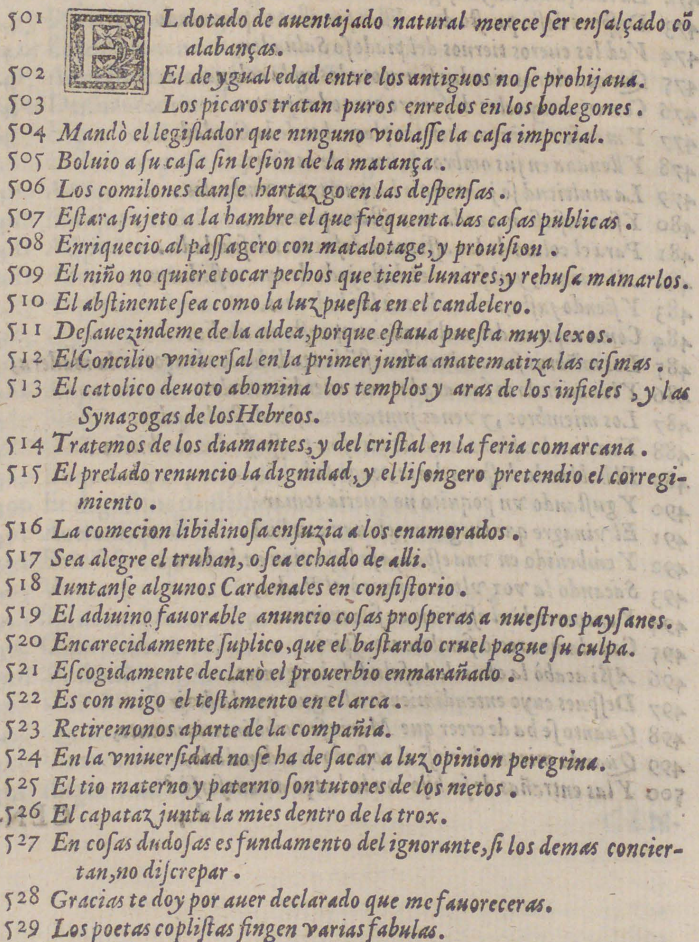 501 EL dotado de auentajado natural merece ser ensalçado cõ
alabanças.
502 El de ygual edad entre los antiguos no se prohijaua.
503 Los picaros tratan puros enredos en los bodegones.
504 Mandò el legislador que ninguno violasse la casa imperial.
505 Boluio a su casa sin lesion de la matança.
506 Los comilones danse hartazgo en las despensas.
507 Estara sujeto a la hambre el que frequenta las casas publicas.
508 Enriquecio al passagero con matalotage, y prouision.
509 El niño no quiere tocar pechos que tienẽ lunares, y rehusa mamarlos.
510 El abstinente sea como la luz puesta en el candelero.
511 Desauezindeme de la aldea, porque estaua puesta muy lexos.
512 El Concilio vniuersal en la primer junta anatematiza las cismas.
513 El catolico deuoto abomina los templos y aras de los infieles, y las
Synagogas de los Hebreos.
514 Tratemos de los diamantes, y del cristal en la feria comarcana.
515 El prelado renuncio la dignidad, y el lisongero pretendio el corregi-
miento.
516 La comecion libidinosa ensuzia a los enamorados.
517 Sea alegre el truhan, o sea echado de alli.
518 Iuntanse algunos Cardenales en consistorio.
519 El adiuino fauorable anuncio cosas prosperas a nuestros paysanes.
520 Encarecidamente suplico, que el bastardo cruel pague su culpa.
521 Escogidamente declarò el prouerbio enmarañado.
522 Es con migo el testamento en el arca.
523 Retiremonos aparte de la compañia.
524 En la vniuersidad no se ha de sacar a luz opinion peregrina.
525 El tio materno y paterno son tutores de los nietos.
526 El capataz junta la mies dentro de la trox.
527 En cosas dudosas es fundamento del ignorante, si los demas concier-
tan, no discrepar.
528 Gracias te doy por auer declarado que me fauoreceras.
529 Los poetas coplistas fingen varias fabulas.